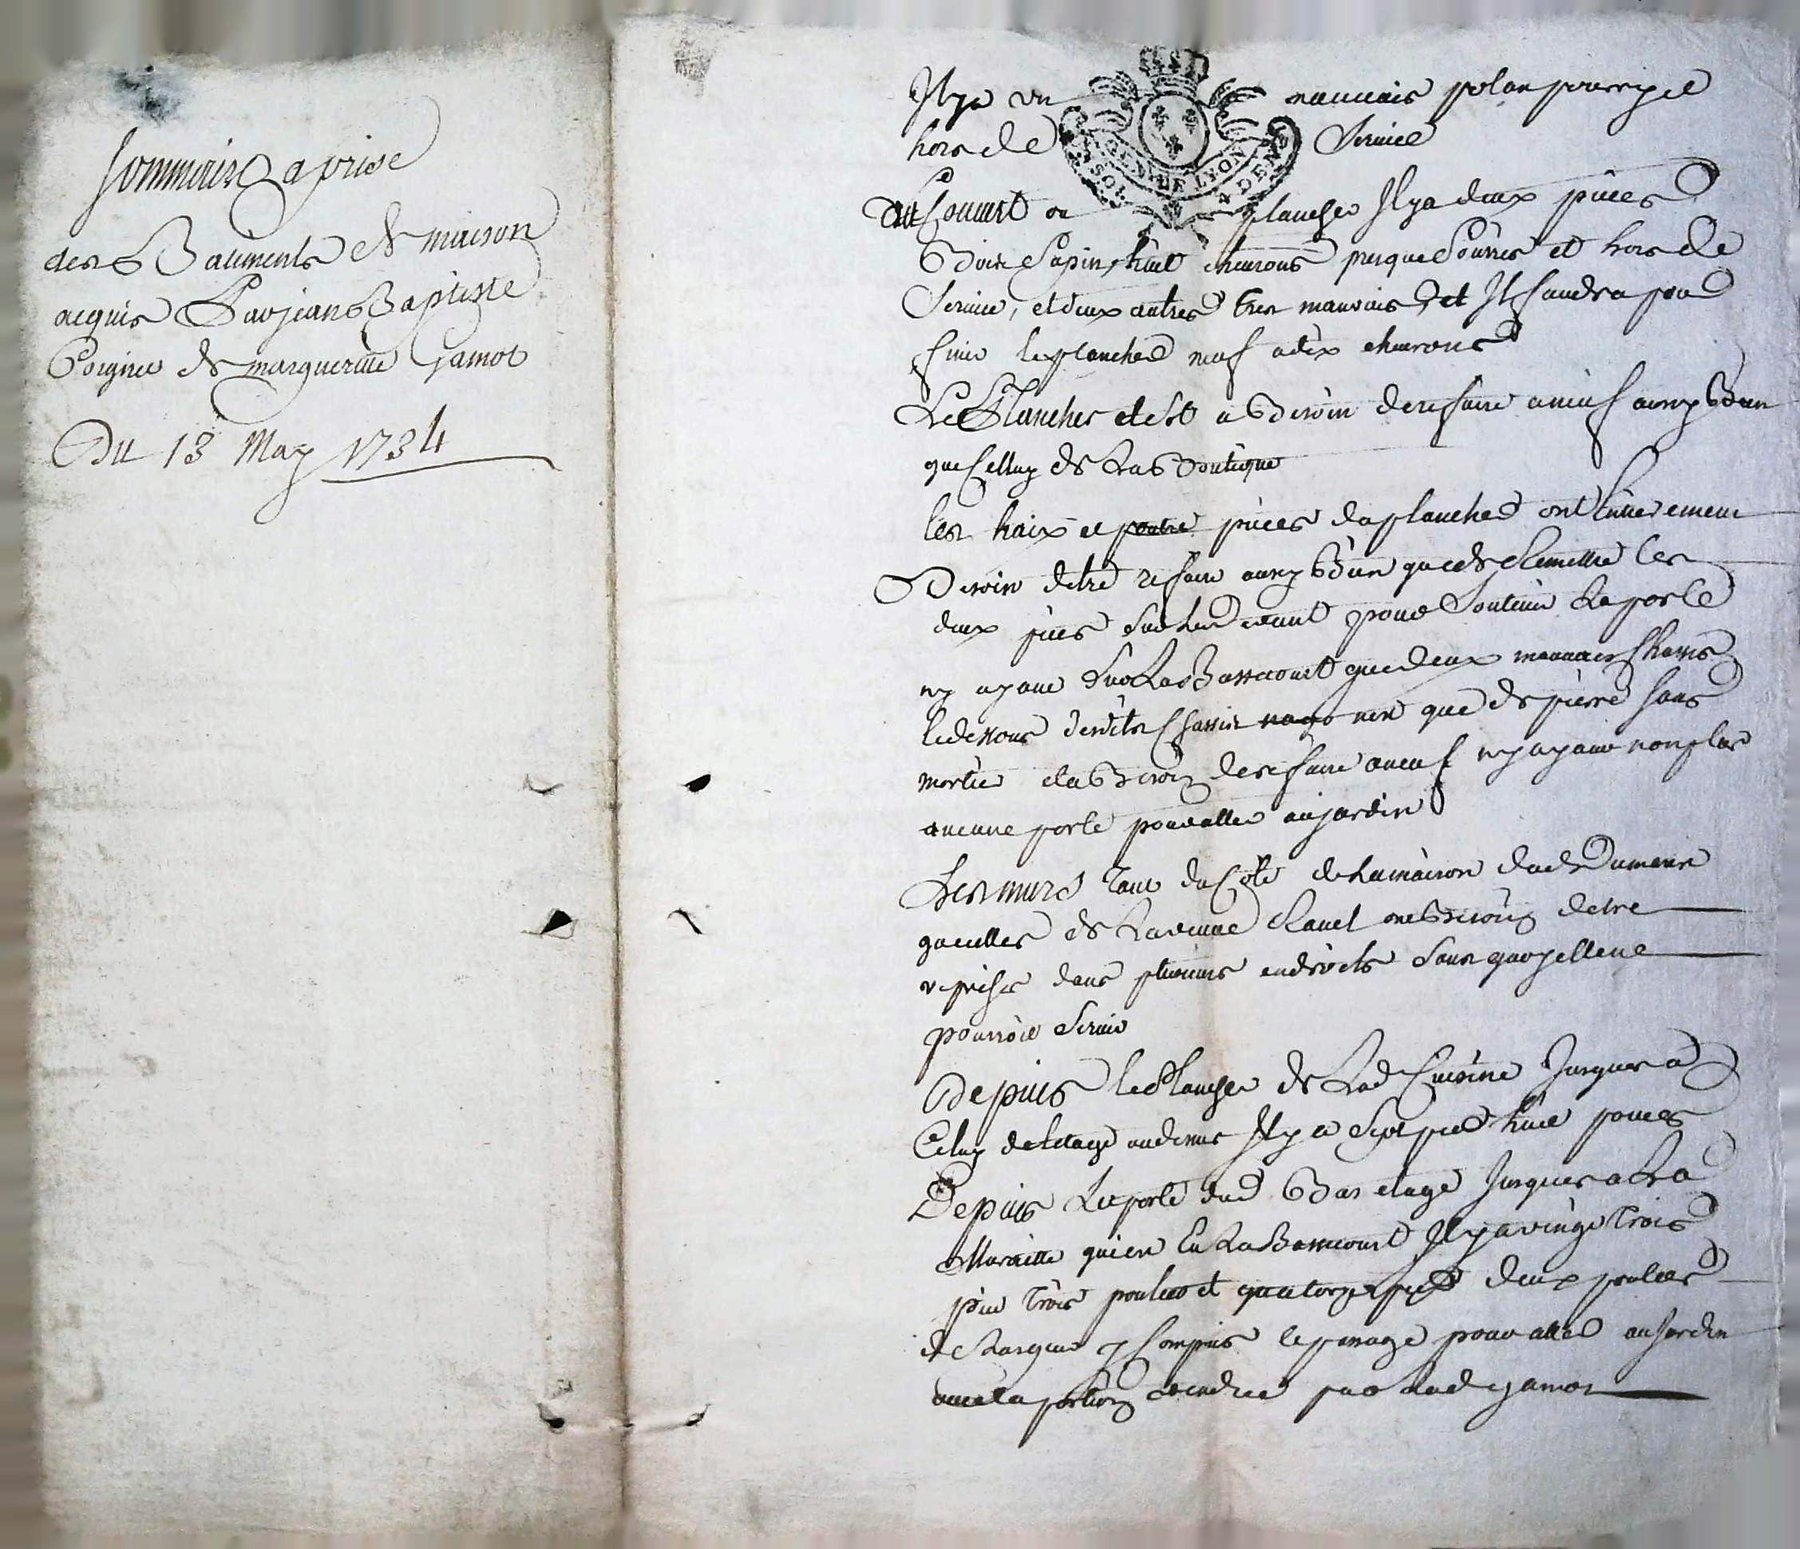 Sommaire aprise
des Batiments & maison
acquis Par jean Baptiste
Poignée de marguerite Gamot
Du 13 May 1734
Il y a un mauvais pourry et
hors de Service
GEN. DE LYON
SOL
DEN
Au Couvert ou planché Il y a deux pièces
Bois Sapin, huit chevrons presque Pourris et hors de
Service, et deux autres tres mauvais, et Il faudra pour
finir le planché neuf a dix chevrons
Le Plancher est a Besoin de refaire a neuf aussy Bien
que Celluy de La Boutique
les haix et poutre pièces du planché ont Entierement
Besoin detre refaire aussy Bien que de Remettre les
deux pour Soutenir La porte
ny ayant Sur La Bassecourt que deux mauvais Chassis
le dessous desdits Chassis nayo nen que de pierre Sans
mortier et a Besoin de refaire a neuf ny ayant non plus
aucune porte pour aller au jardin
Les murs Tant du Coté de La maison dud Dumene
que celles de La veuve Ravel ont Besoin detre
reprises dans plusieurs endroits Sans quoy elle ne
pourroit Servir
Depuis le Planché de Lad Cuisine Jusques a
Celuy de letage au dessus Il y a Sept pied huit pouces
Depuis La porte dud Bas etage Jusques a La
Muraille qui en La Bassecourt Il y a vingt Trois
pied Trois pouces et quatorze pied deux pouces
de Largeur y Compris le passage pour aller au Jardin
avec la portion vendue par Lad Gamot